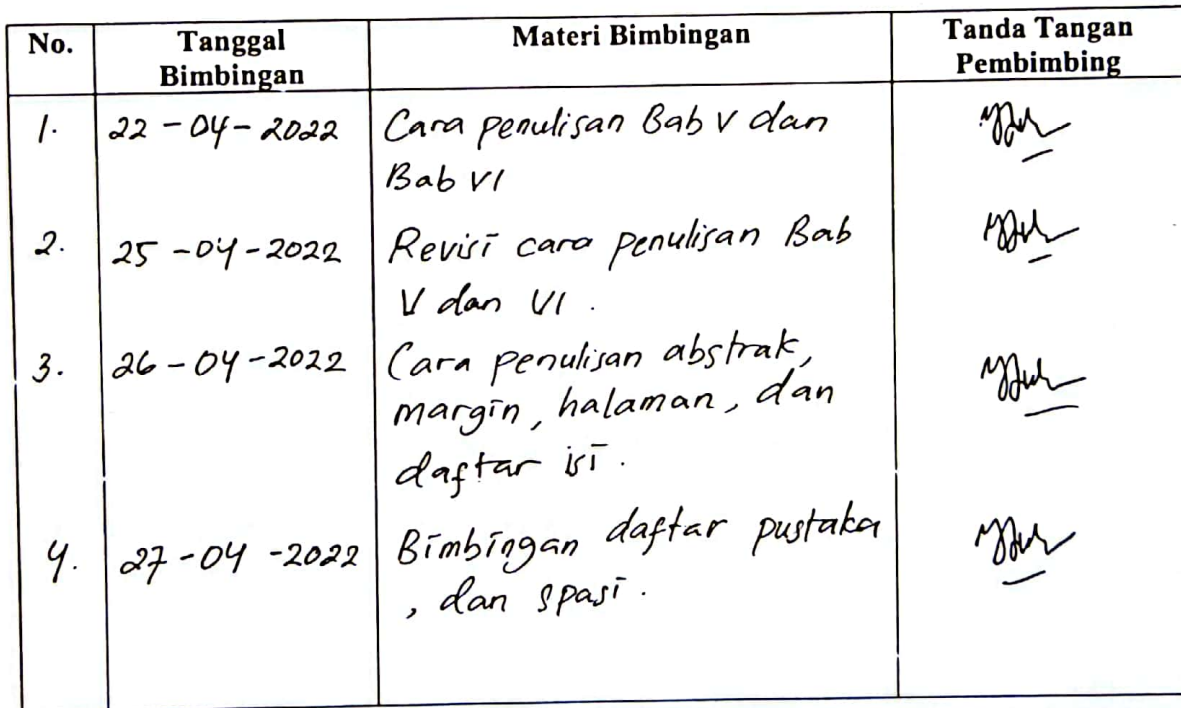 No. Tanggal Bimbingan Materi Bimbingan Tanda Tangan Pembimbing
1. 22-04-2022 Cara penulisan Bab V dan
Bab VI
2. 25-04-2022 Revisi cara penulisan Bab
V dan VI.
3. 26-04-2022 Cara penulisan abstrak,
margin, halaman, dan
daftar isi.
4. 27-04-2022 Bimbingan daftar pustaka
, dan spasi.